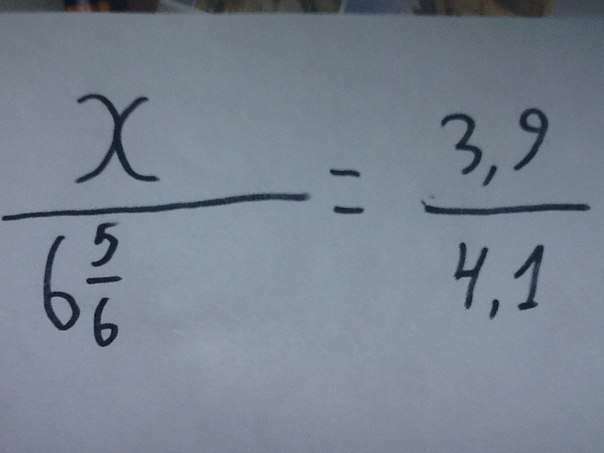 x / 6 5/6 = 3,9 / 4,1